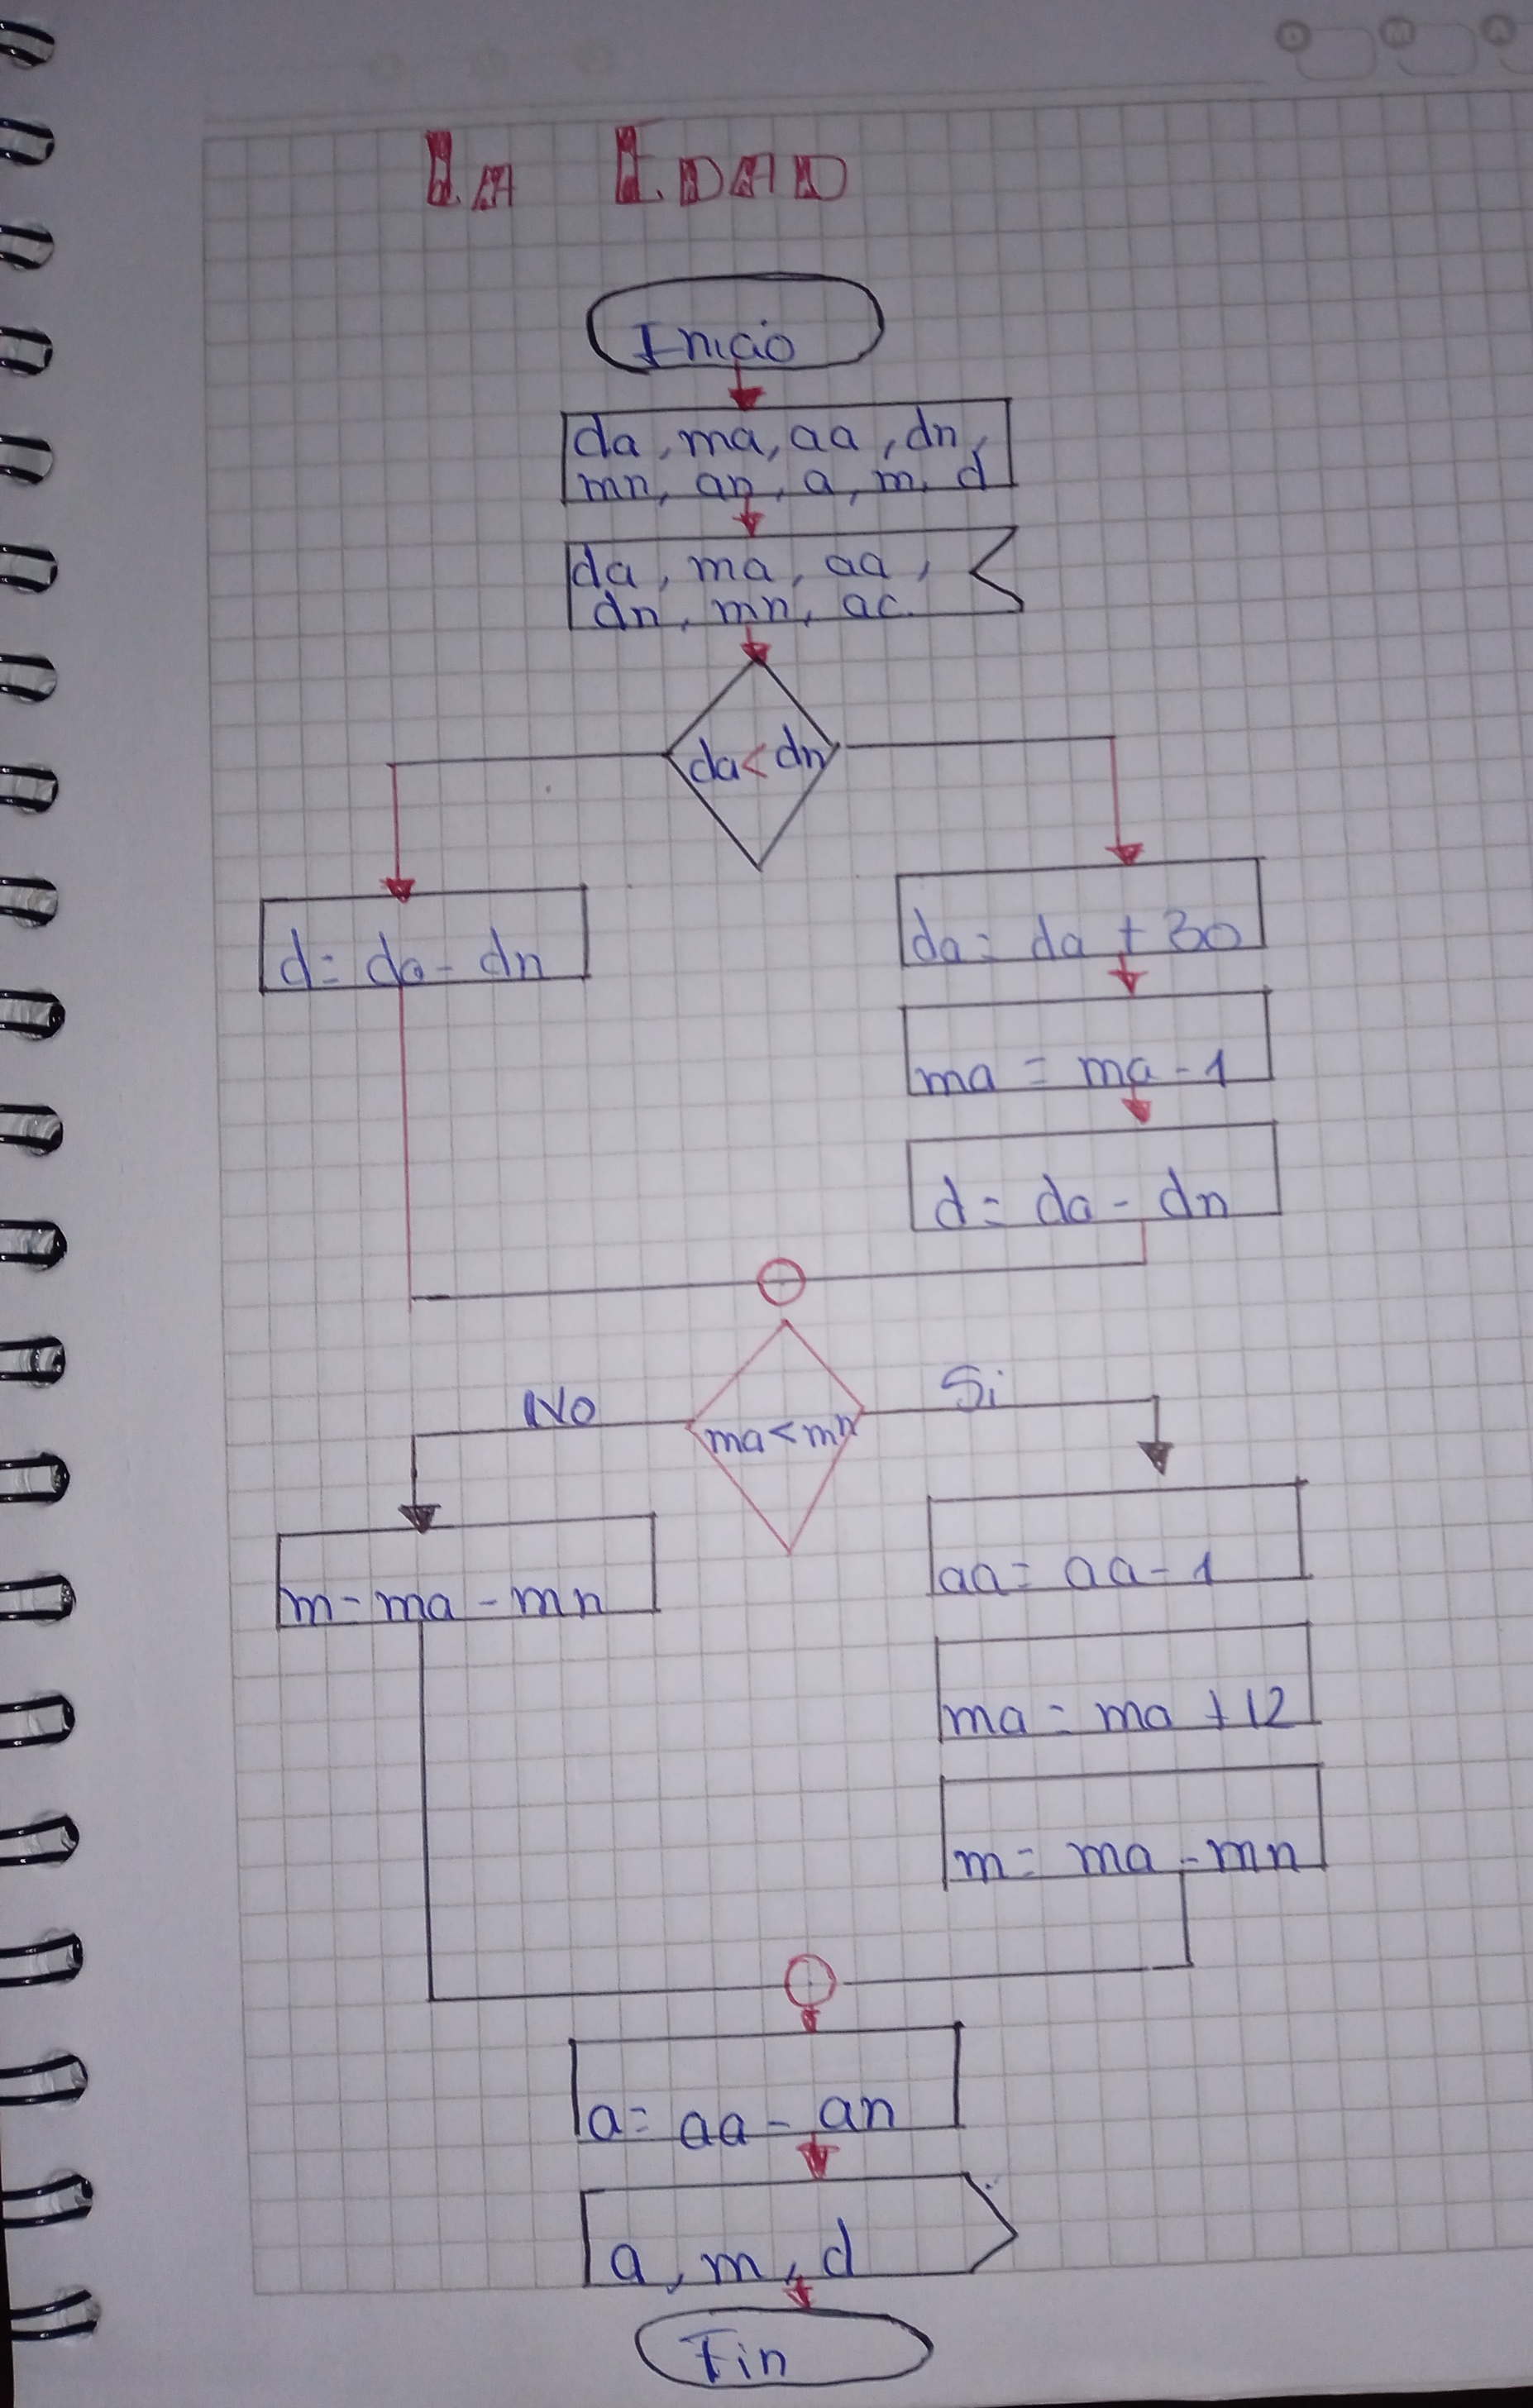 D M A
LA EDAD
Inicio
da, ma, aa, dn,
mn, an, a, m, d
da, ma, aa,
dn, mn, ac.
da < dn
d = da - dn
da = da + 30
ma = ma - 1
d = da - dn
No
Si
ma < mn
m = ma - mn
aa = aa - 1
ma = ma + 12
m = ma - mn
a = aa - an
a, m, d
Fin